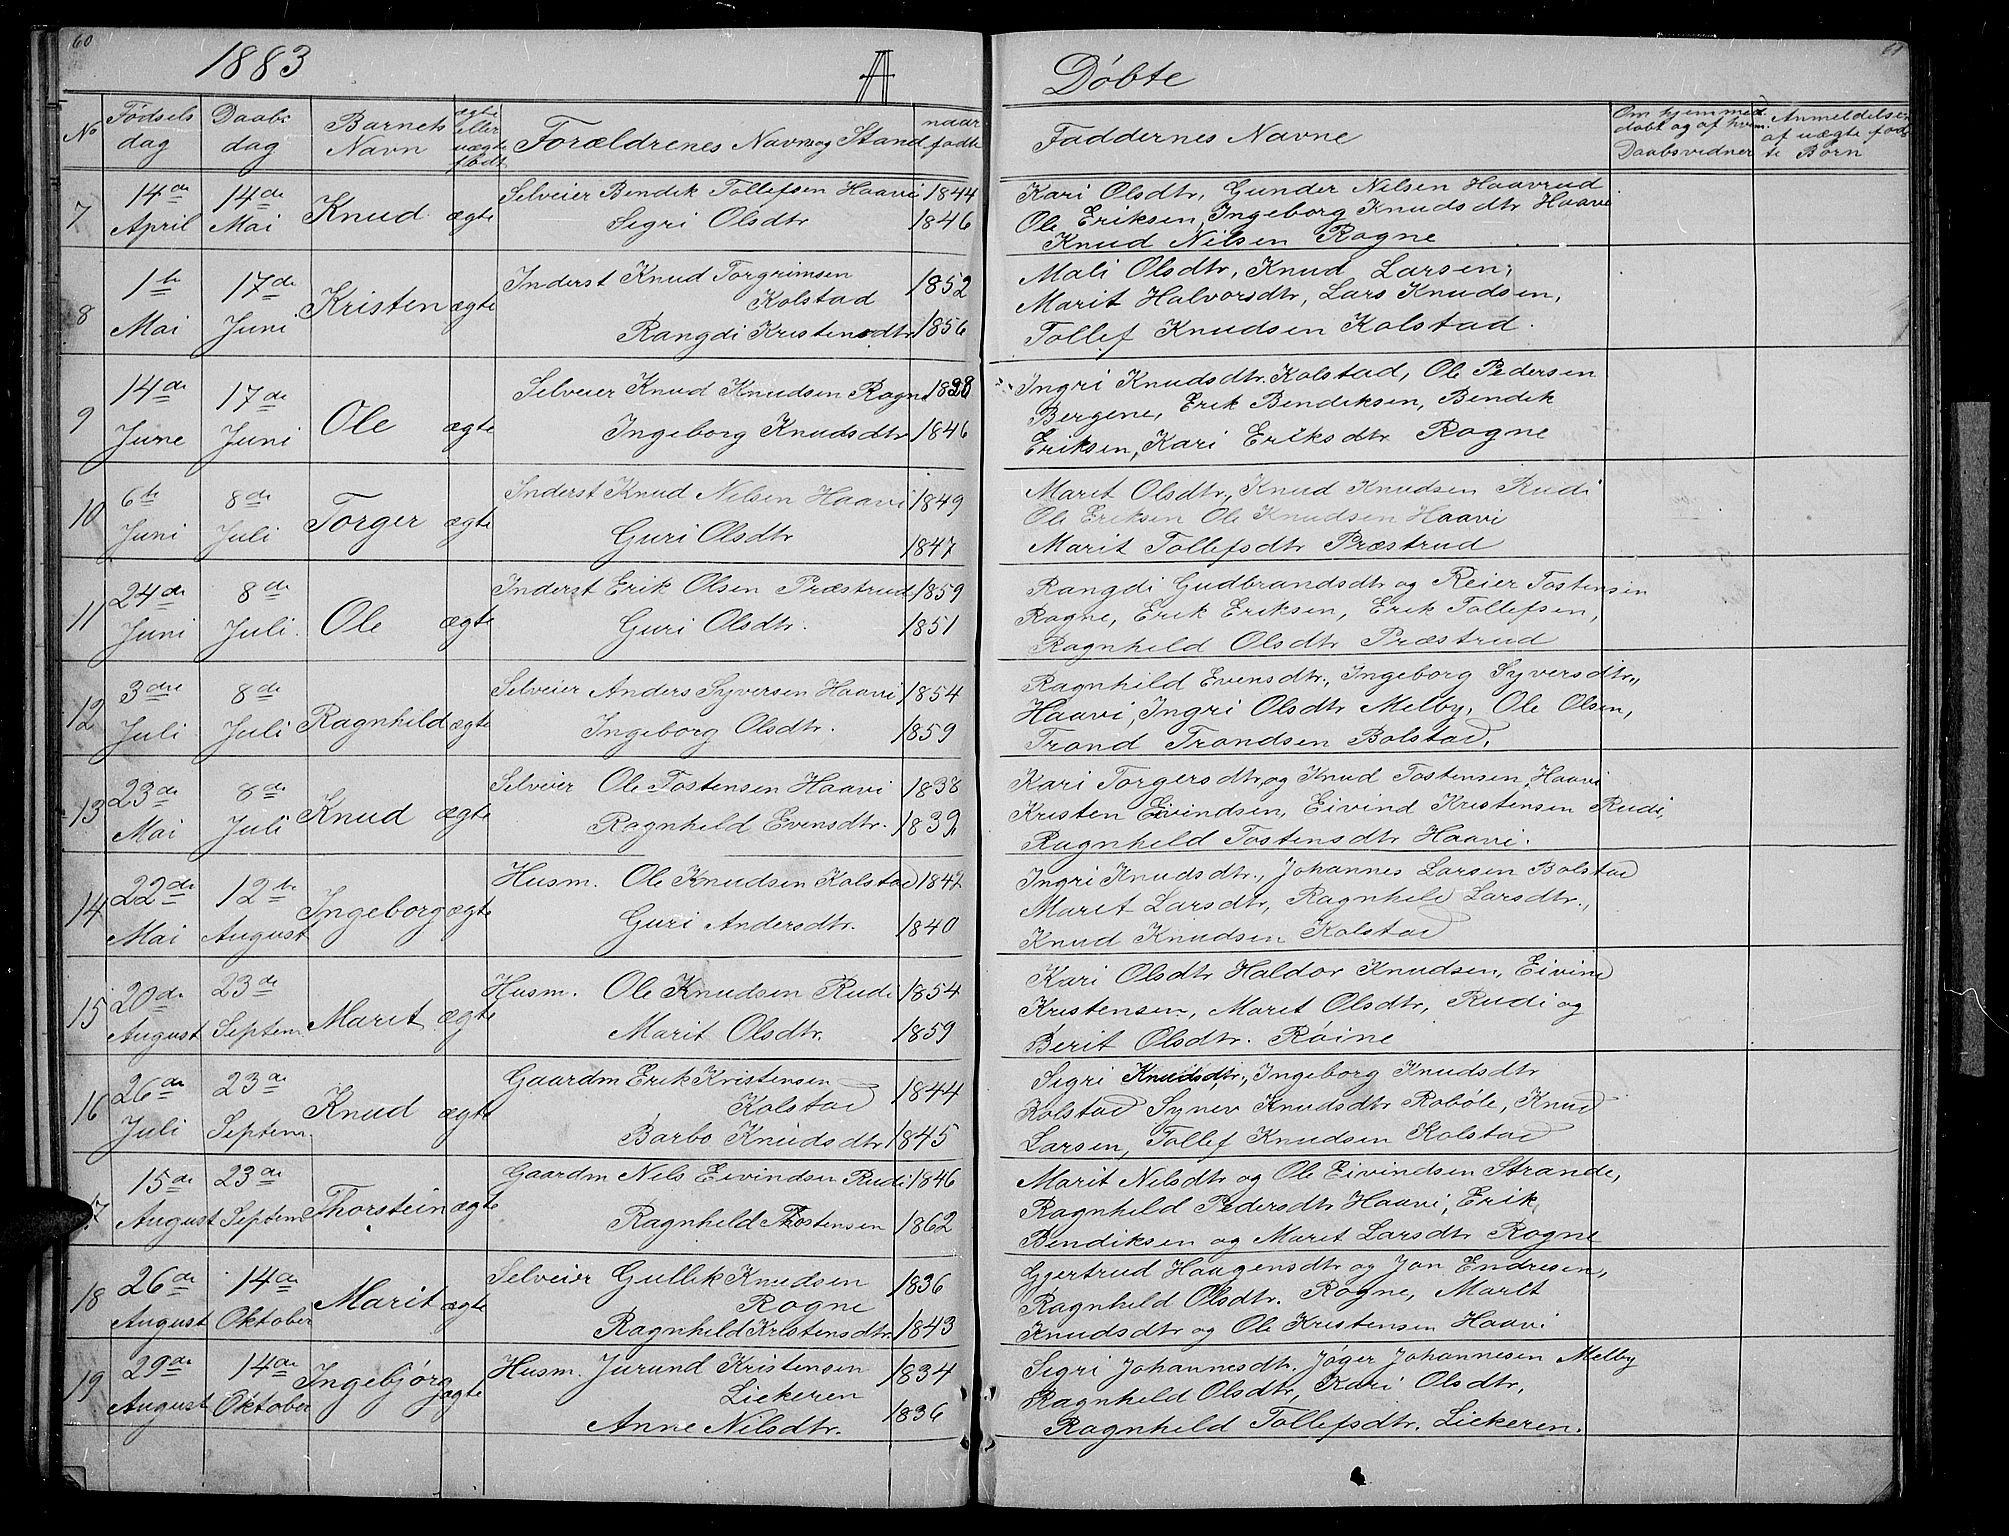 60
1883
A
Døbte
61
No
Fødsels dag
Daabs dag
Barnets Navn
ægte eller uægte født
Forældrenes Navn og Stand
naar fødte
Faddernes Navne
Om hjemmedøbt og af hvem. Daabsvidner
Anmeldelsen af uægte fødte Børn
7 14de April 14de Mai Knud ægte
Selveier Bendik Tollefsen Haavi 1844
Sigri Olsdtr 1846
Kari Olsdtr, Gunder Nilsen Haavrud
Ole Eriksen, Ingeborg Knudsdtr Haavi
Knud Nilsen Rogne
8 1te Mai 17de Juni Kristen ægte
Inderst Knud Torgrimsen 1852
Kolstad
Rangdi Kristensdtr 1856
Mali Olsdtr, Knud Larsen,
Marit Halvorsdtr, Lars Knudsen,
Tollef Knudsen Kolstad.
9 14de June 17de Juni Ole ægte
Selveier Knud Knudsen Rogne 1828
Ingeborg Knudsdtr 1846
Ingri Knudsdtr. Kolstad, Ole Pedersen
Bergene, Erik Bendiksen, Bendik
Eriksen, Kari Eriksdtr Rogne
10 6te Juni 8de Juli Torger ægte
Inderst Knud Nilsen Haavi 1849
Guri Olsdtr 1847
Marit Olsdtr, Knud Knudsen Rudi
Ole Eriksen Ole Knudsen Haavi
Marit Tollefsdtr Præstrud
11 24de Juni 8de Juli. Ole ægte
Inderst Erik Olsen Præstrud 1859
Guri Olsdtr. 1851
Rangdi Gudbrandsdtr og Reier Tostensen
Rogne, Erik Eriksen, Erik Tollefsen,
Ragnhild Olsdtr Præstrud
12 3die Juli 8de Juli Ragnhild ægte
Selveier Anders Syversen Haavi 1854
Ingeborg Olsdtr. 1859
Ragnhild Evensdtr., Ingeborg Syversdtr.,
Haavi, Ingri Olsdtr Melby, Ole Olsen,
Trond Trondsen Bolstad.
13 23de Mai 8de Juli Knud ægte
Selveier Ole Tostensen Haavi 1838
Ragnhild Evensdtr. 1839
Kari Torgersdtr, og Knud Tostensen, Haavi
Kristen Eivindsen, Eivind Kristensen Rudi,
Ragnhild Tostensdtr Haavi.
14 22de Mai 12te August Ingeborg ægte
Husm. Ole Knudsen Kolstad 1842
Guri Andersdtr. 1840
Ingri Knudsdtr., Johannes Larsen Bolstad
Marit Larsdtr, Ragnhild Larsdtr.,
Knud Knudsen Kolstad
15 20de August 23de Septem. Marit ægte
Husm. Ole Knudsen Rudi 1854
Marit Olsdtr. 1859
Kari Olsdtr Haldor Knudsen, Eivind
Kristensen, Marit Olsdtr, Rudi og
Berit Olsdtr. Røine
16 26de Juli 23de Septem. Knud ægte
Gaardm Erik Kristensen 1844
Kolstad
Barbo Knudsdtr 1845
Sigri Knudsdtr., Ingeborg Knudsdtr
Kolstad Synev Knudsdtr Robøle, Knud
Larsen, Tollef Knudsen Kolstad
17 15de August 23de Septem Thorstein ægte
Gaardm Nils Eivindsen Rudi 1846
Ragnhild Thostensen 1862
Marit Nilsdtr og Ole Eivindsen Strande,
Ragnhild Pedersdtr Haavi, Erik
Bendiksen og Marit Larsdtr Rogne
18 26de August 14de Oktober Marit ægte
Selveier Gullik Knudsen 1836
Rogne
Ragnhild Kristensdtr 1843
Gjertrud Haagensdtr og Jon Endresen,
Ragnhild Olsdtr. Rogne, Marit
Knudsdtr og Ole Kristensen Haavi
19 29de August 14de Oktober Ingebjörg ægte
Husm. Jurund Kristensen 1834
Liekeren
Anne Nilsdtr. 1836
Sigri Johannesdtr. Jøger Johannesen Melby
Ragnhild Olsdtr, Kari Olsdtr,
Ragnhild Tollefsdtr. Liekeren.